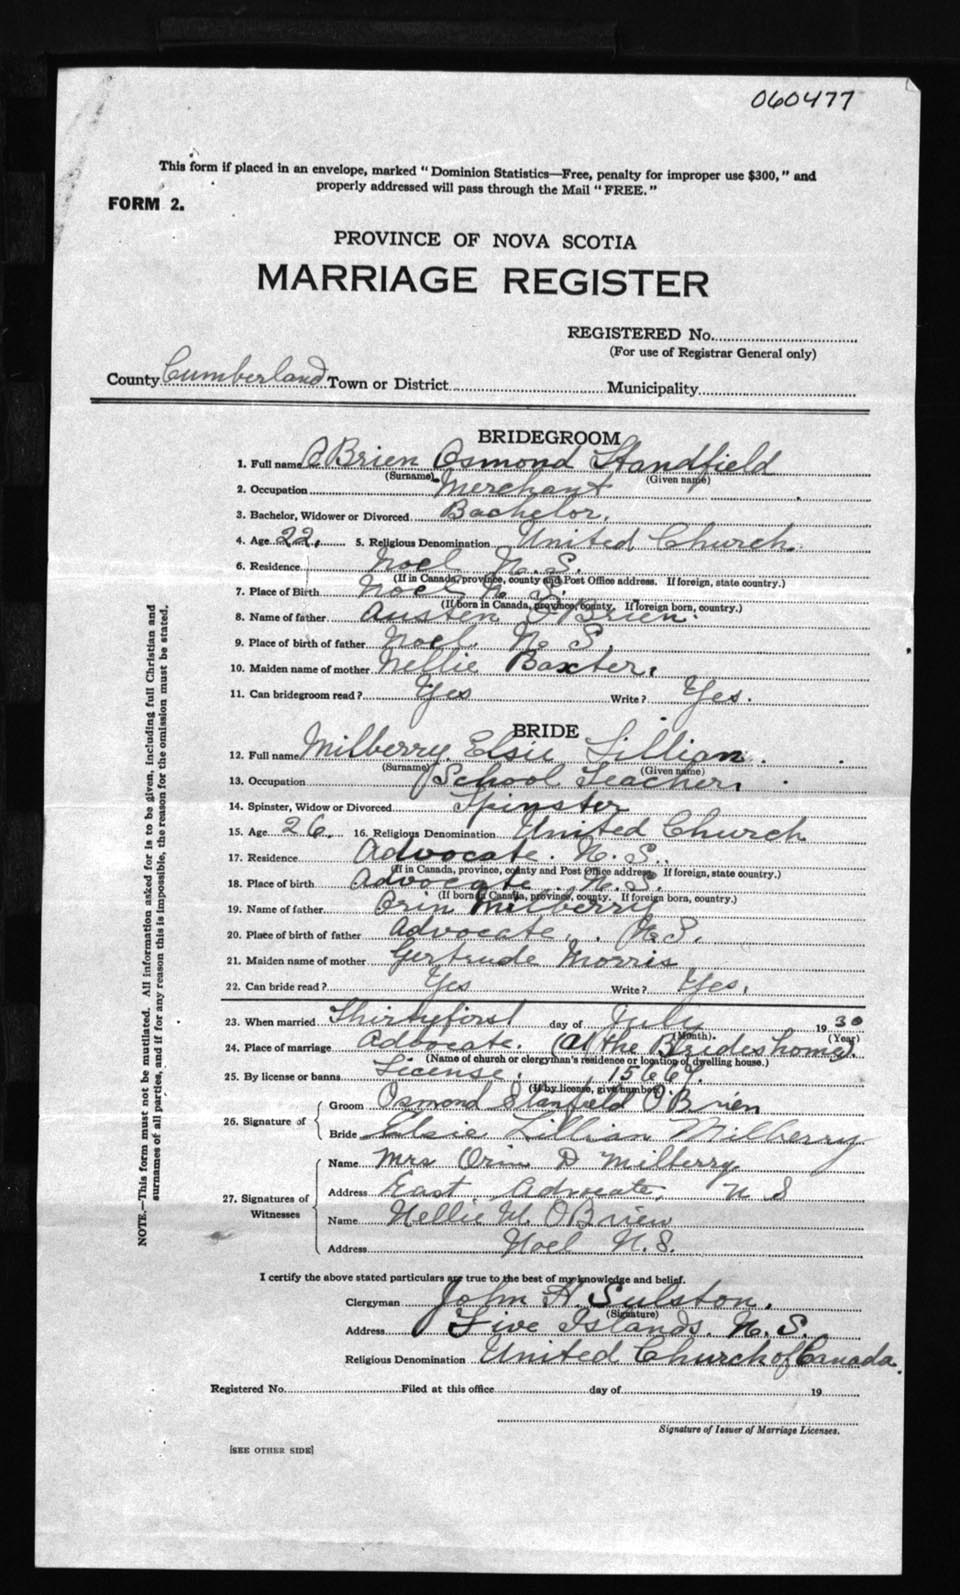 060477
This form if placed in an envelope, marked "Dominion Statistics—Free, penalty for improper use $300," and
properly addressed will pass through the Mail "FREE."
FORM 2.
PROVINCE OF NOVA SCOTIA
MARRIAGE REGISTER
REGISTERED No.
(For use of Registrar General only)
County Cumberland Town or District Municipality
BRIDEGROOM
1. Full name O'Brien Osmond Standfield
(Surname) (Given name)
2. Occupation Merchant
3. Bachelor, Widower or Divorced Bachelor.
4. Age 22. 5. Religious Denomination United Church.
6. Residence Noel N.S.
(If in Canada, province, county and Post Office address. If foreign, state country.)
7. Place of Birth Noel N.S.
(If born in Canada, province, county. If foreign born, country.)
8. Name of father Austen O'Brien.
9. Place of birth of father Noel N S
10. Maiden name of mother Nellie Baxter.
11. Can bridegroom read? Yes Write? Yes.
BRIDE
12. Full name Milberry Elsie Lillian.
(Surname) (Given name)
13. Occupation School Teacher.
14. Spinster, Widow or Divorced Spinster
15. Age 26. 16. Religious Denomination United Church
17. Residence Advocate. N.S.
(If in Canada, province, county and Post Office address. If foreign, state country.)
18. Place of birth Advocate. N.S.
(If born in Canada, province, county. If foreign born, country.)
19. Name of father Orin Milberry
20. Place of birth of father Advocate. N.S.
21. Maiden name of mother Gertrude Morris
22. Can bride read? Yes Write? Yes.
23. When married Thirtyfirst day of July 1930
(Month). (Year)
24. Place of marriage Advocate. (At the Brides home).
(Name of church or clergyman's residence or location of dwelling house.)
25. By license or banns License.
(If by license, give number)
26. Signature of
Groom Osmond Stanfield O'Brien
Bride Elsie Lillian Milberry
27. Signatures of Witnesses
Name Mrs Orin D Milberry
Address East Advocate, N S
Name Nellie M. O'Brien
Address Noel N.S.
I certify the above stated particulars are true to the best of my knowledge and belief.
Clergyman John H. Sulston.
(Signature)
Address Five Islands. N.S.
Religious Denomination United Church of Canada.
Registered No. Filed at this office day of 19
Signature of Issuer of Marriage Licenses.
[SEE OTHER SIDE]
NOTE.—This form must not be mutilated. All information asked for is to be given, including full Christian and
surnames of all parties, and if for any reason this is impossible, the reason for the omission must be stated.